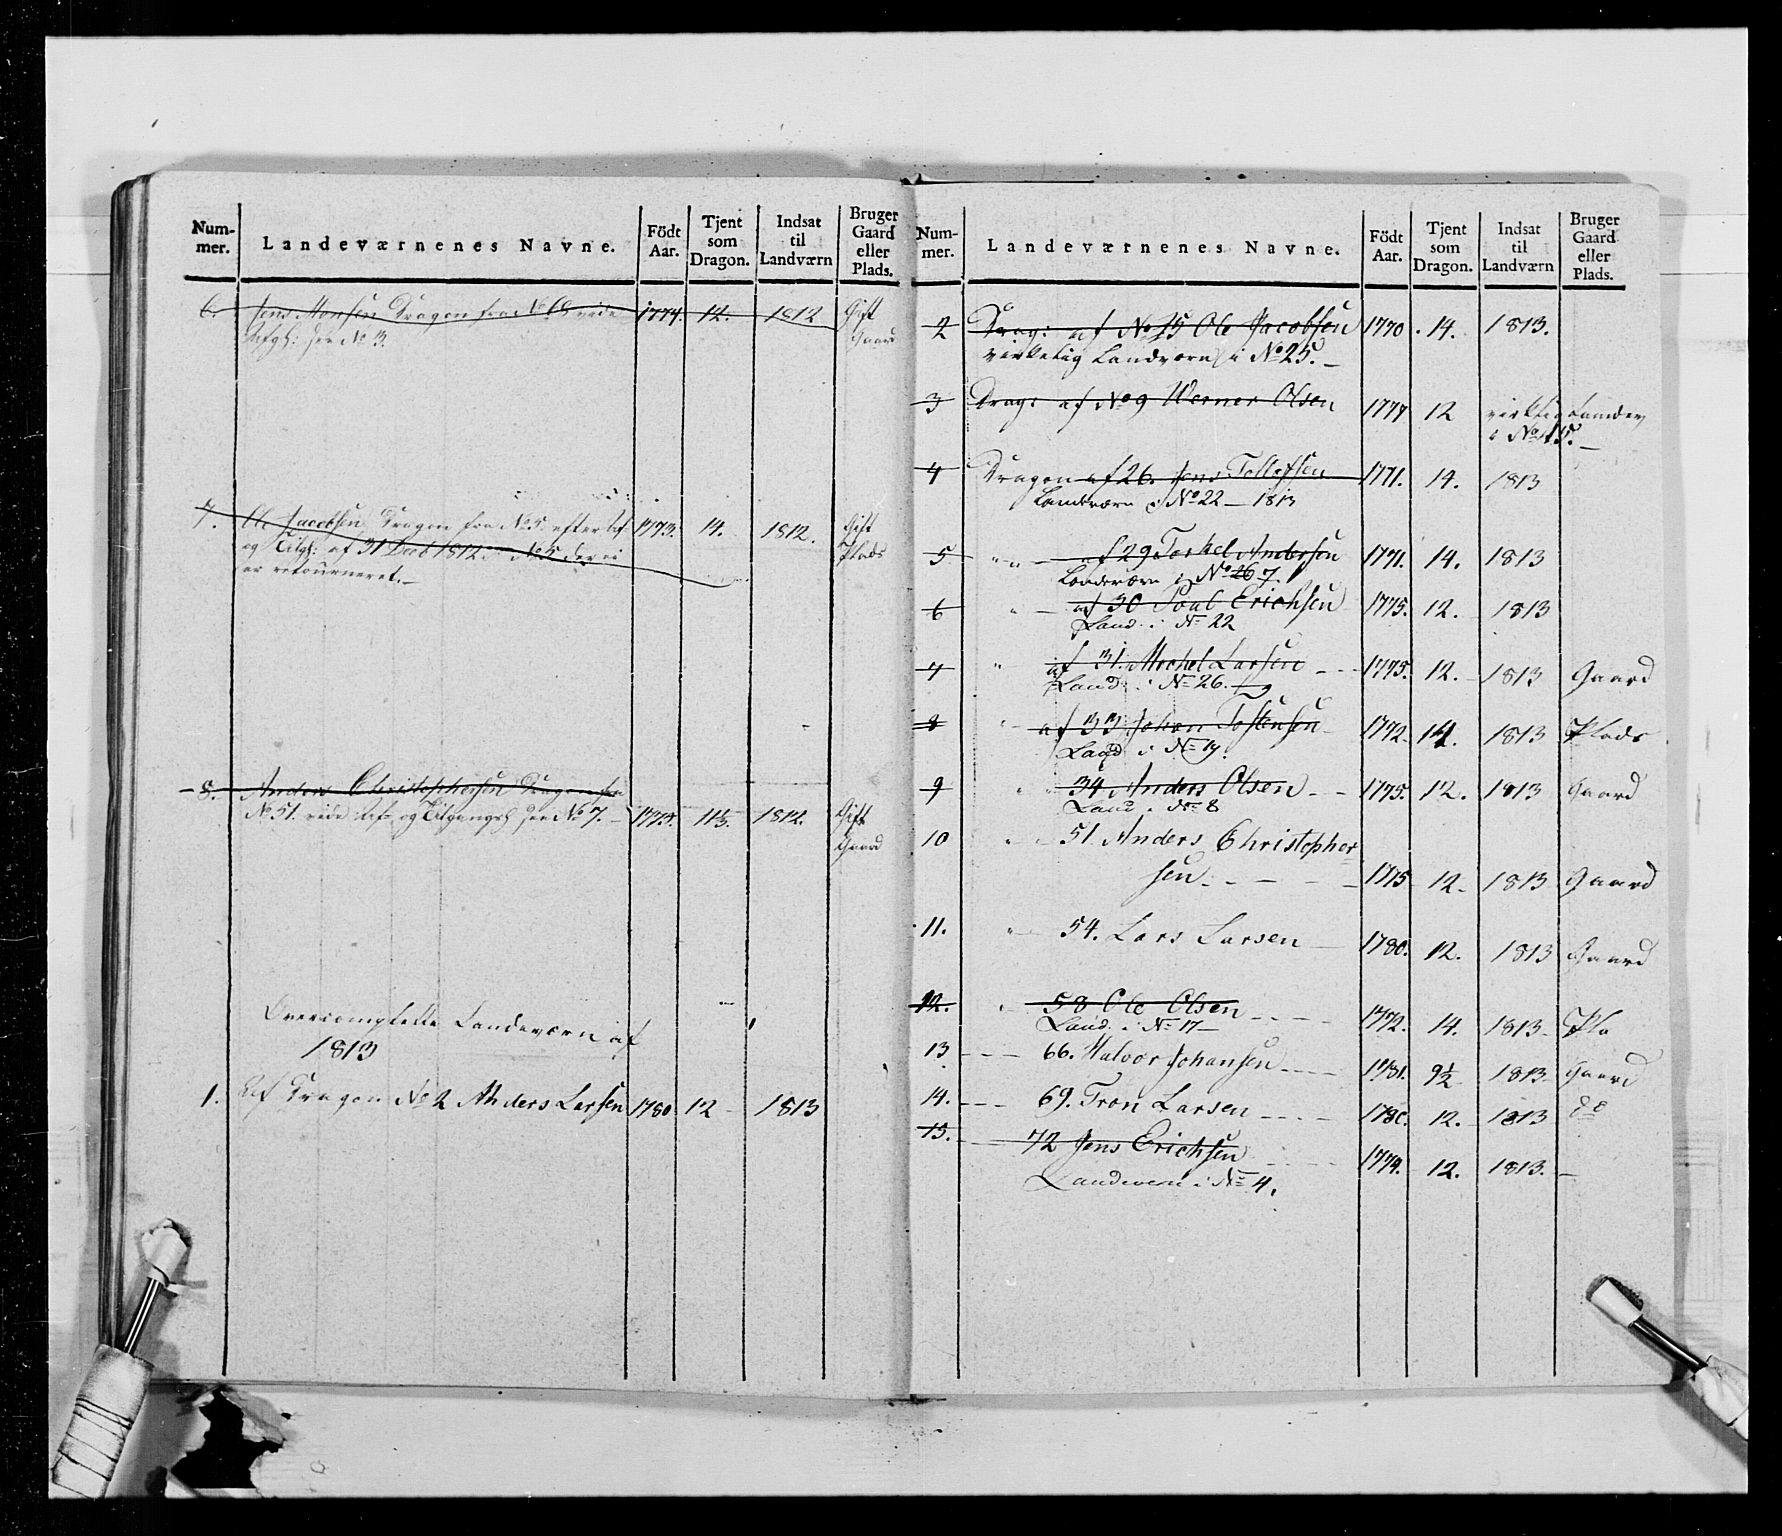 Num-
mer.
Landeværnenes Navne.
Födt
Aar.
Tjent
som
Dragon.
Indsat
til
Landværn
Bruger
Gaard
eller
Plads.
6. Jens Monsen Dragon fra No 68 vide 1774. 12. 1812 Gift
Afgh: see No 3. Gaard
7. Ole Jacobsen Dragon fra No 5. efter Af= 1773. 14. 1812. Gift
og Tilgh: af 31 Decb 1812. No 5 der ei Plads
er retourneret.
8. Anders Christophersen Dragon fra
No 51. vide Af= og Tilgangsl see No 7. 1775. 11½. 1812. Gift
Gaard
Overcomplette Landeværn af
1813
1. Af Dragon No 2 Anders Larsen 1780 12 1813
Num-
mer.
Landeværnenes Navne.
Födt
Aar.
Tjent
som
Dragon.
Indsat
til
Landværn
Bruger
Gaard
eller
Plads.
2 Drag: af No 15 Ole Jacobsen 1770. 14. 1813.
virkelig Landværn i No 25.
3 Drag: af No 9 Werner Olsen 1777 12 virklig Landev
i No 15.
4 Dragon af 26. Jens Tollefsen 1771. 14. 1813
Landværn i No 22 - 1813
5 " " af 29 Torkel Andersen 1771. 14. 1813
Landværn i No 26 7.
6 " af 30 Poul Erichsen 1775. 12. 1813
Land: i No 22
7 " af 31. Mochel Larsen 1775. 12. 1813 Gaard
Land: i No 26.
8 " af 33 Johan Tostensen 1772. 14. 1813 Plads
Land i No 19.
9 " " 34 Anders Olsen 1775. 12. 1813 Gaard
Land i No 8
10 " 51 Anders Christopher=
sen 1775 12 1813 Gaard
11. " 54. Lars Larsen 1780. 12. 1813 Gaard
12. " 58 Ole Olsen 1772. 14. 1813 Pla
Land: i No 17
13 66. Halvor Johansen 1781. 9½ 1813 Gaard
14. 69. Tron Larsen 1780. 12. 1813 do
15. 72 Jens Erichsen 1774. 12. 1813.
Landevern i No 4.